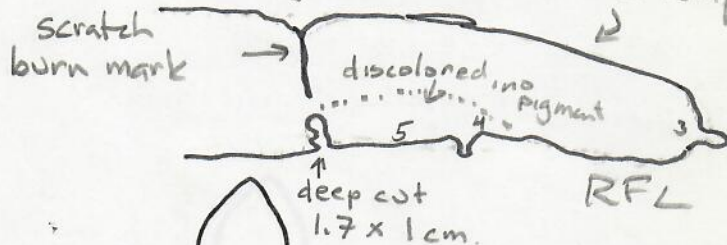 scratch
burn mark
discolored, no
pigment
5
4
3
RFL
deep cut
1.7 x 1 cm.